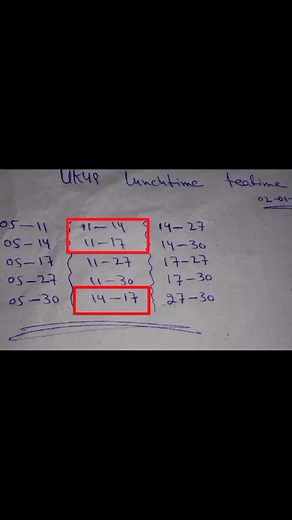 UK49 Lunchtime teatime
02-01-
05-11 11-14 14-27
05-14 11-17 14-30
05-17 11-27 17-27
05-27 11-30 17-30
05-30 14-17 27-30